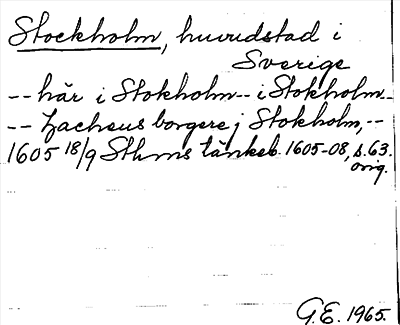 Stockholm, huvudstad i
Sverige
-- här i Stokholm -- i Stokholm --
-- Zacheus borgere j Stokholm, --
1605 18/9 Sthms tänkeb. 1605-08, s. 63.
orig.
G.E. 1965.